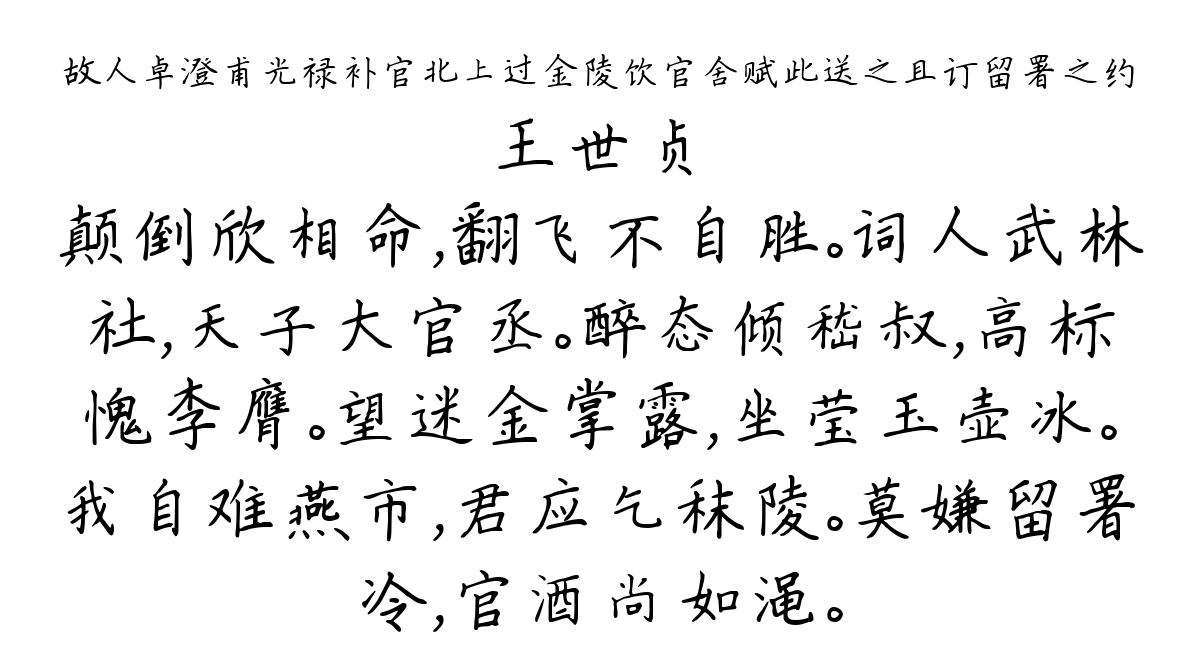 故人卓澄甫光禄补官北上过金陵饮官舍赋此送之且订留署之约
王世贞
颠倒欣相命,翻飞不自胜。词人武林
社,天子大官丞。醉态倾嵇叔,高标
愧李膺。望迷金掌露,坐莹玉壶冰。
我自难燕市,君应乞秣陵。莫嫌留署
冷,官酒尚如渑。